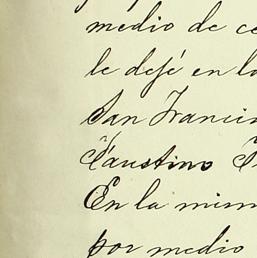 medio de ce
le dejé en la
San Francis
Faustino
En la mism
por medio